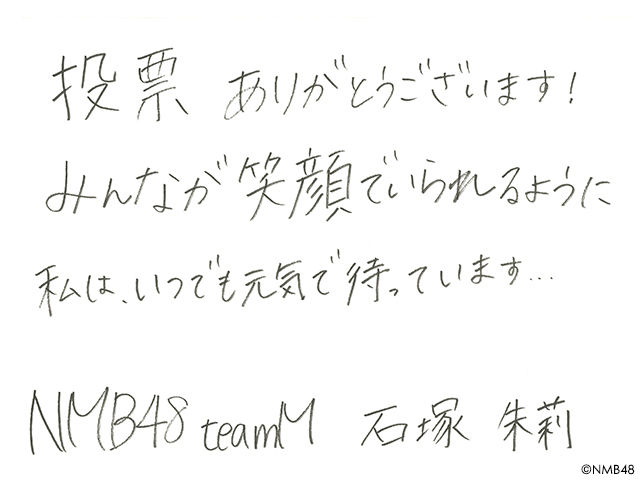 投票 ありがとうございます!
みんなが笑顔でいられるように
私は、いつでも元気で待っています...
NMB48 teamM 石塚 朱莉
©NMB48